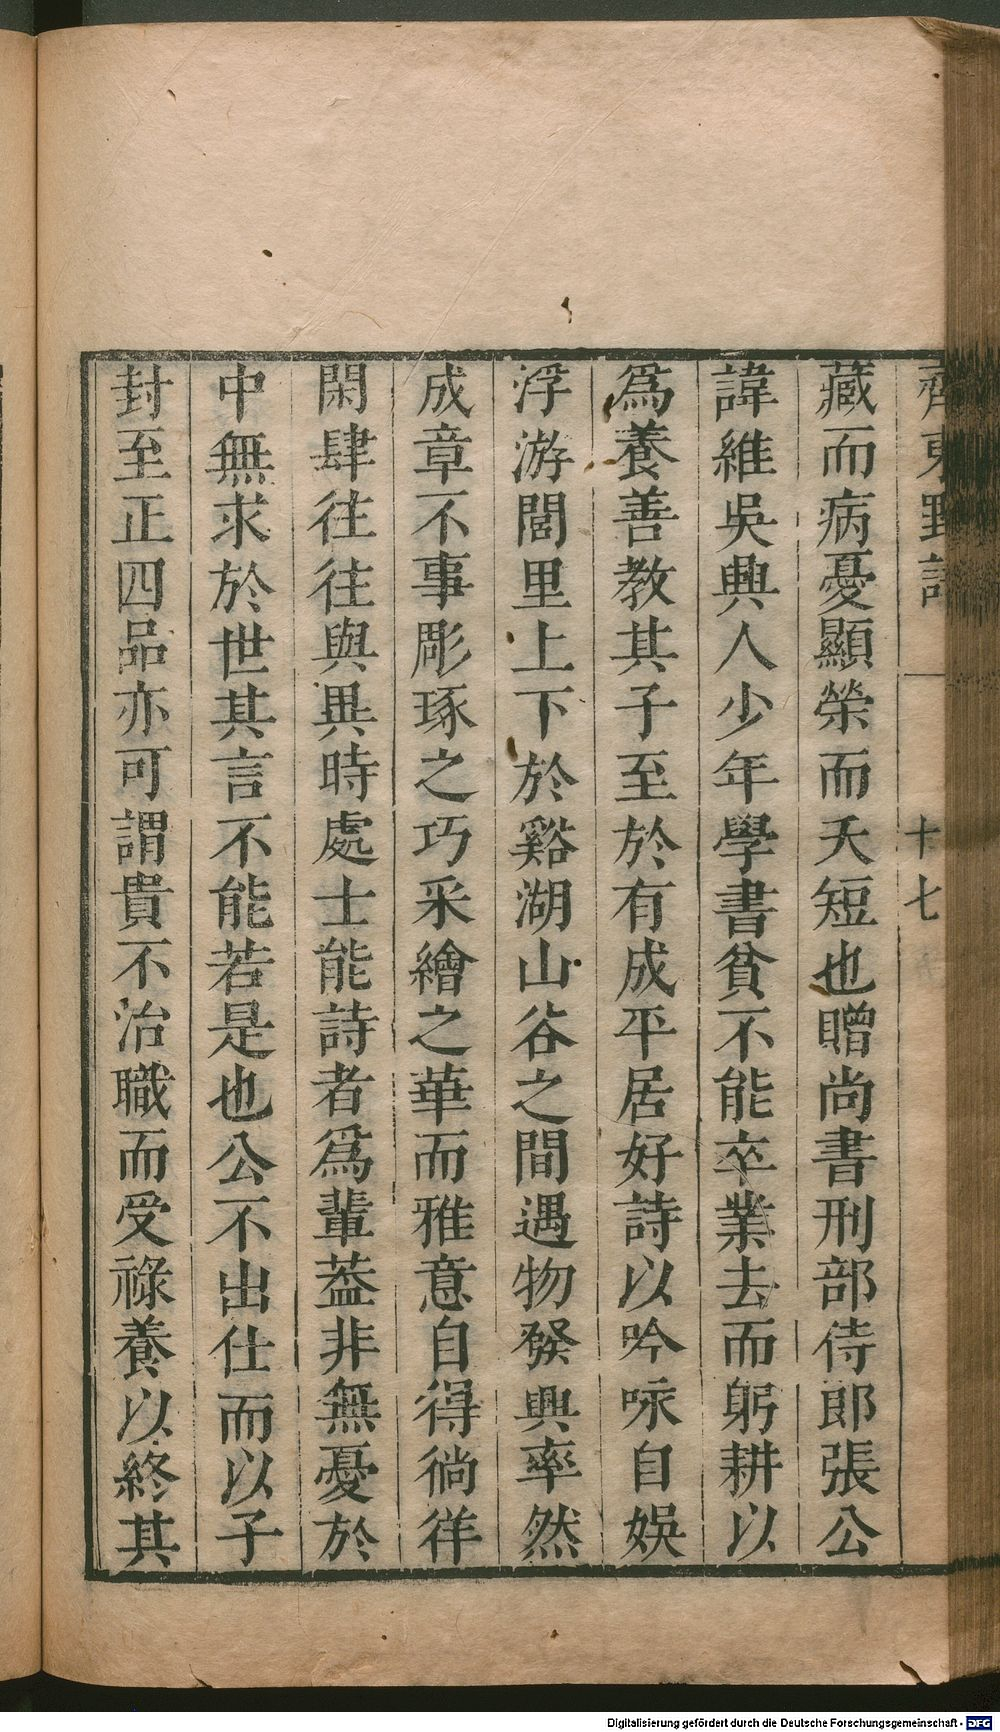 齊東野語
十七
藏而病憂顯榮而夭短也贈尚書刑部侍郎張公
諱維吳興人少年學書貧不能卒業去而躬耕以
爲養善教其子至於有成平居好詩以吟咏自娛
浮游閭里上下於谿湖山谷之間遇物發興率然
成章不事彫琢之巧采繪之華而雅意自得徜徉
閑肆往往與異時處士能詩者爲輩葢非無憂於
中無求於世其言不能若是也公不出仕而以子
封至正四品亦可謂貴不治職而受祿養以終其
Digitalisierung gefördert durch die Deutsche Forschungsgemeinschaft - DFG